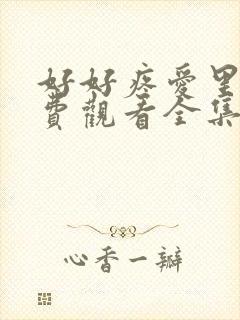 好好疼愛里
費觀看全集
心香一瓣